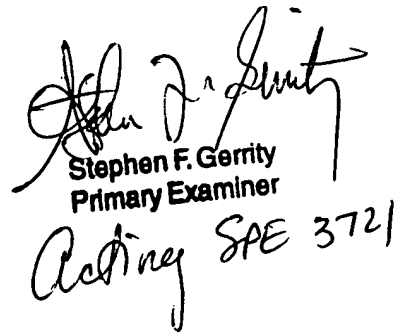 Stephen F. Gerrity
Stephen F. Gerrity
Primary Examiner
Acting SPE 3721